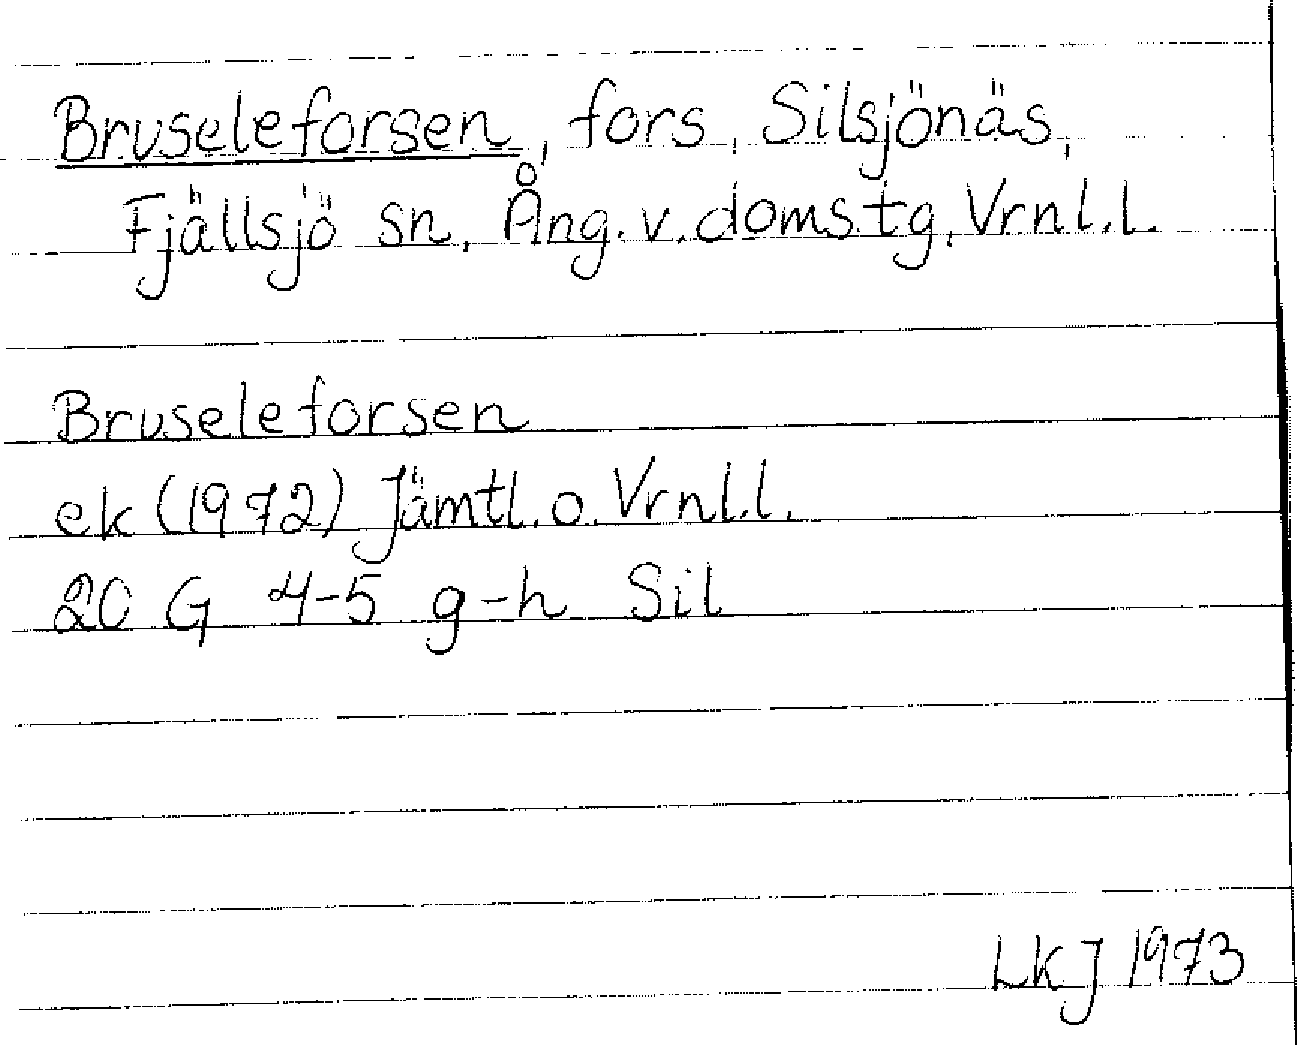 Bruseleforsen, fors, Silsjönäs,
Fjällsjö sn, Ång. v. doms.tg, Vrnl.l.
Bruseleforsen
ek (1972) Jämtl. o. Vrnl.l.
20 G 4-5 g-h Sil
LKJ 1973